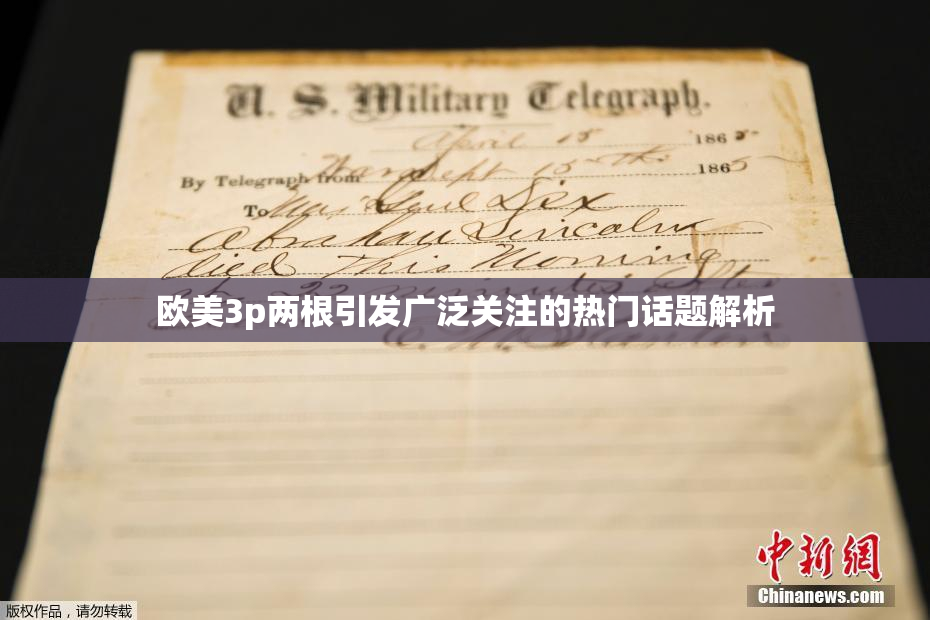 U. S. Military Telegraph.
April 15 1865
By Telegraph from War Dept 15th 1865
To Maj Genl Dix
Abraham Lincoln
died This Morning
at 22 minutes after
欧美3p两根引发广泛关注的热门话题解析
中新网
Chinanews.com
版权作品，请勿转载